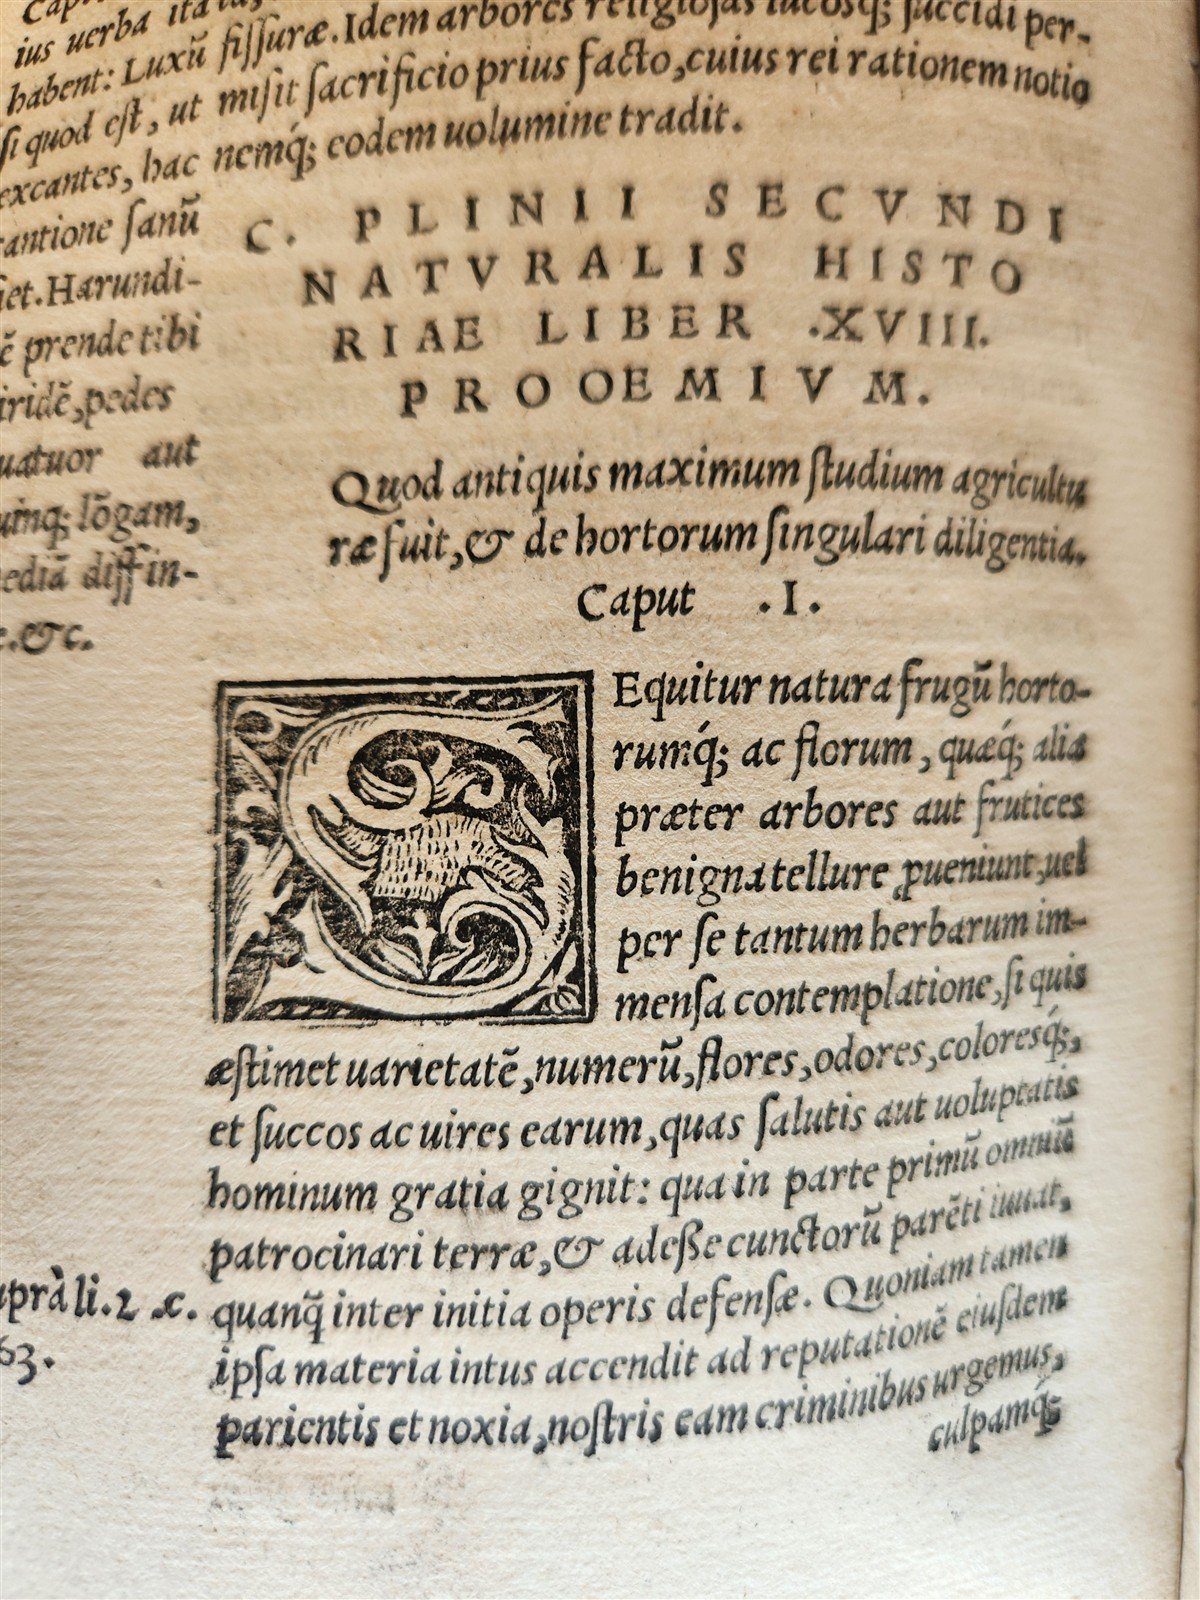 ius uerba ita
habent: Luxū
si quod est, ut
excantes, hac
sanū
Harundi-
prende tibi
pedes
aut
lōgam,
diffin-
&c.
li. 2 .c.
63.
Idem arbores religiosas lucosq; succidi per-
fissuræ. Idem arbores
misit sacrificio prius facto, cuius rei rationem notio
nemq́; eodem uolumine tradit.
C. PLINII SECVNDI
NATVRALIS HISTO
RIAE LIBER .XVIII.
PROOEMIVM.
Quod antiquis maximum studium agricultu
ræ fuit, & de hortorum singulari diligentia.
Caput .I.
SEquitur natura frugū horto-
rumq́; ac florum, quæq́; alia
præter arbores aut frutices
benigna tellure ꝓueniunt, uel
per se tantum herbarum im-
mensa contemplatione, si quis
æstimet uarietatē, numerū, flores, odores, coloresq́;,
et succos ac uires earum, quas salutis aut uoluptatis
hominum gratia gignit: qua in parte primū omniū
patrocinari terræ, & adesse cunctorū parēti iuuat,
quanq̄ inter initia operis defensæ. Quoniam tamen
ipsa materia intus accendit ad reputationē eiusdem
parientis et noxia, nostris eam criminibus urgemus,
culpamq́;